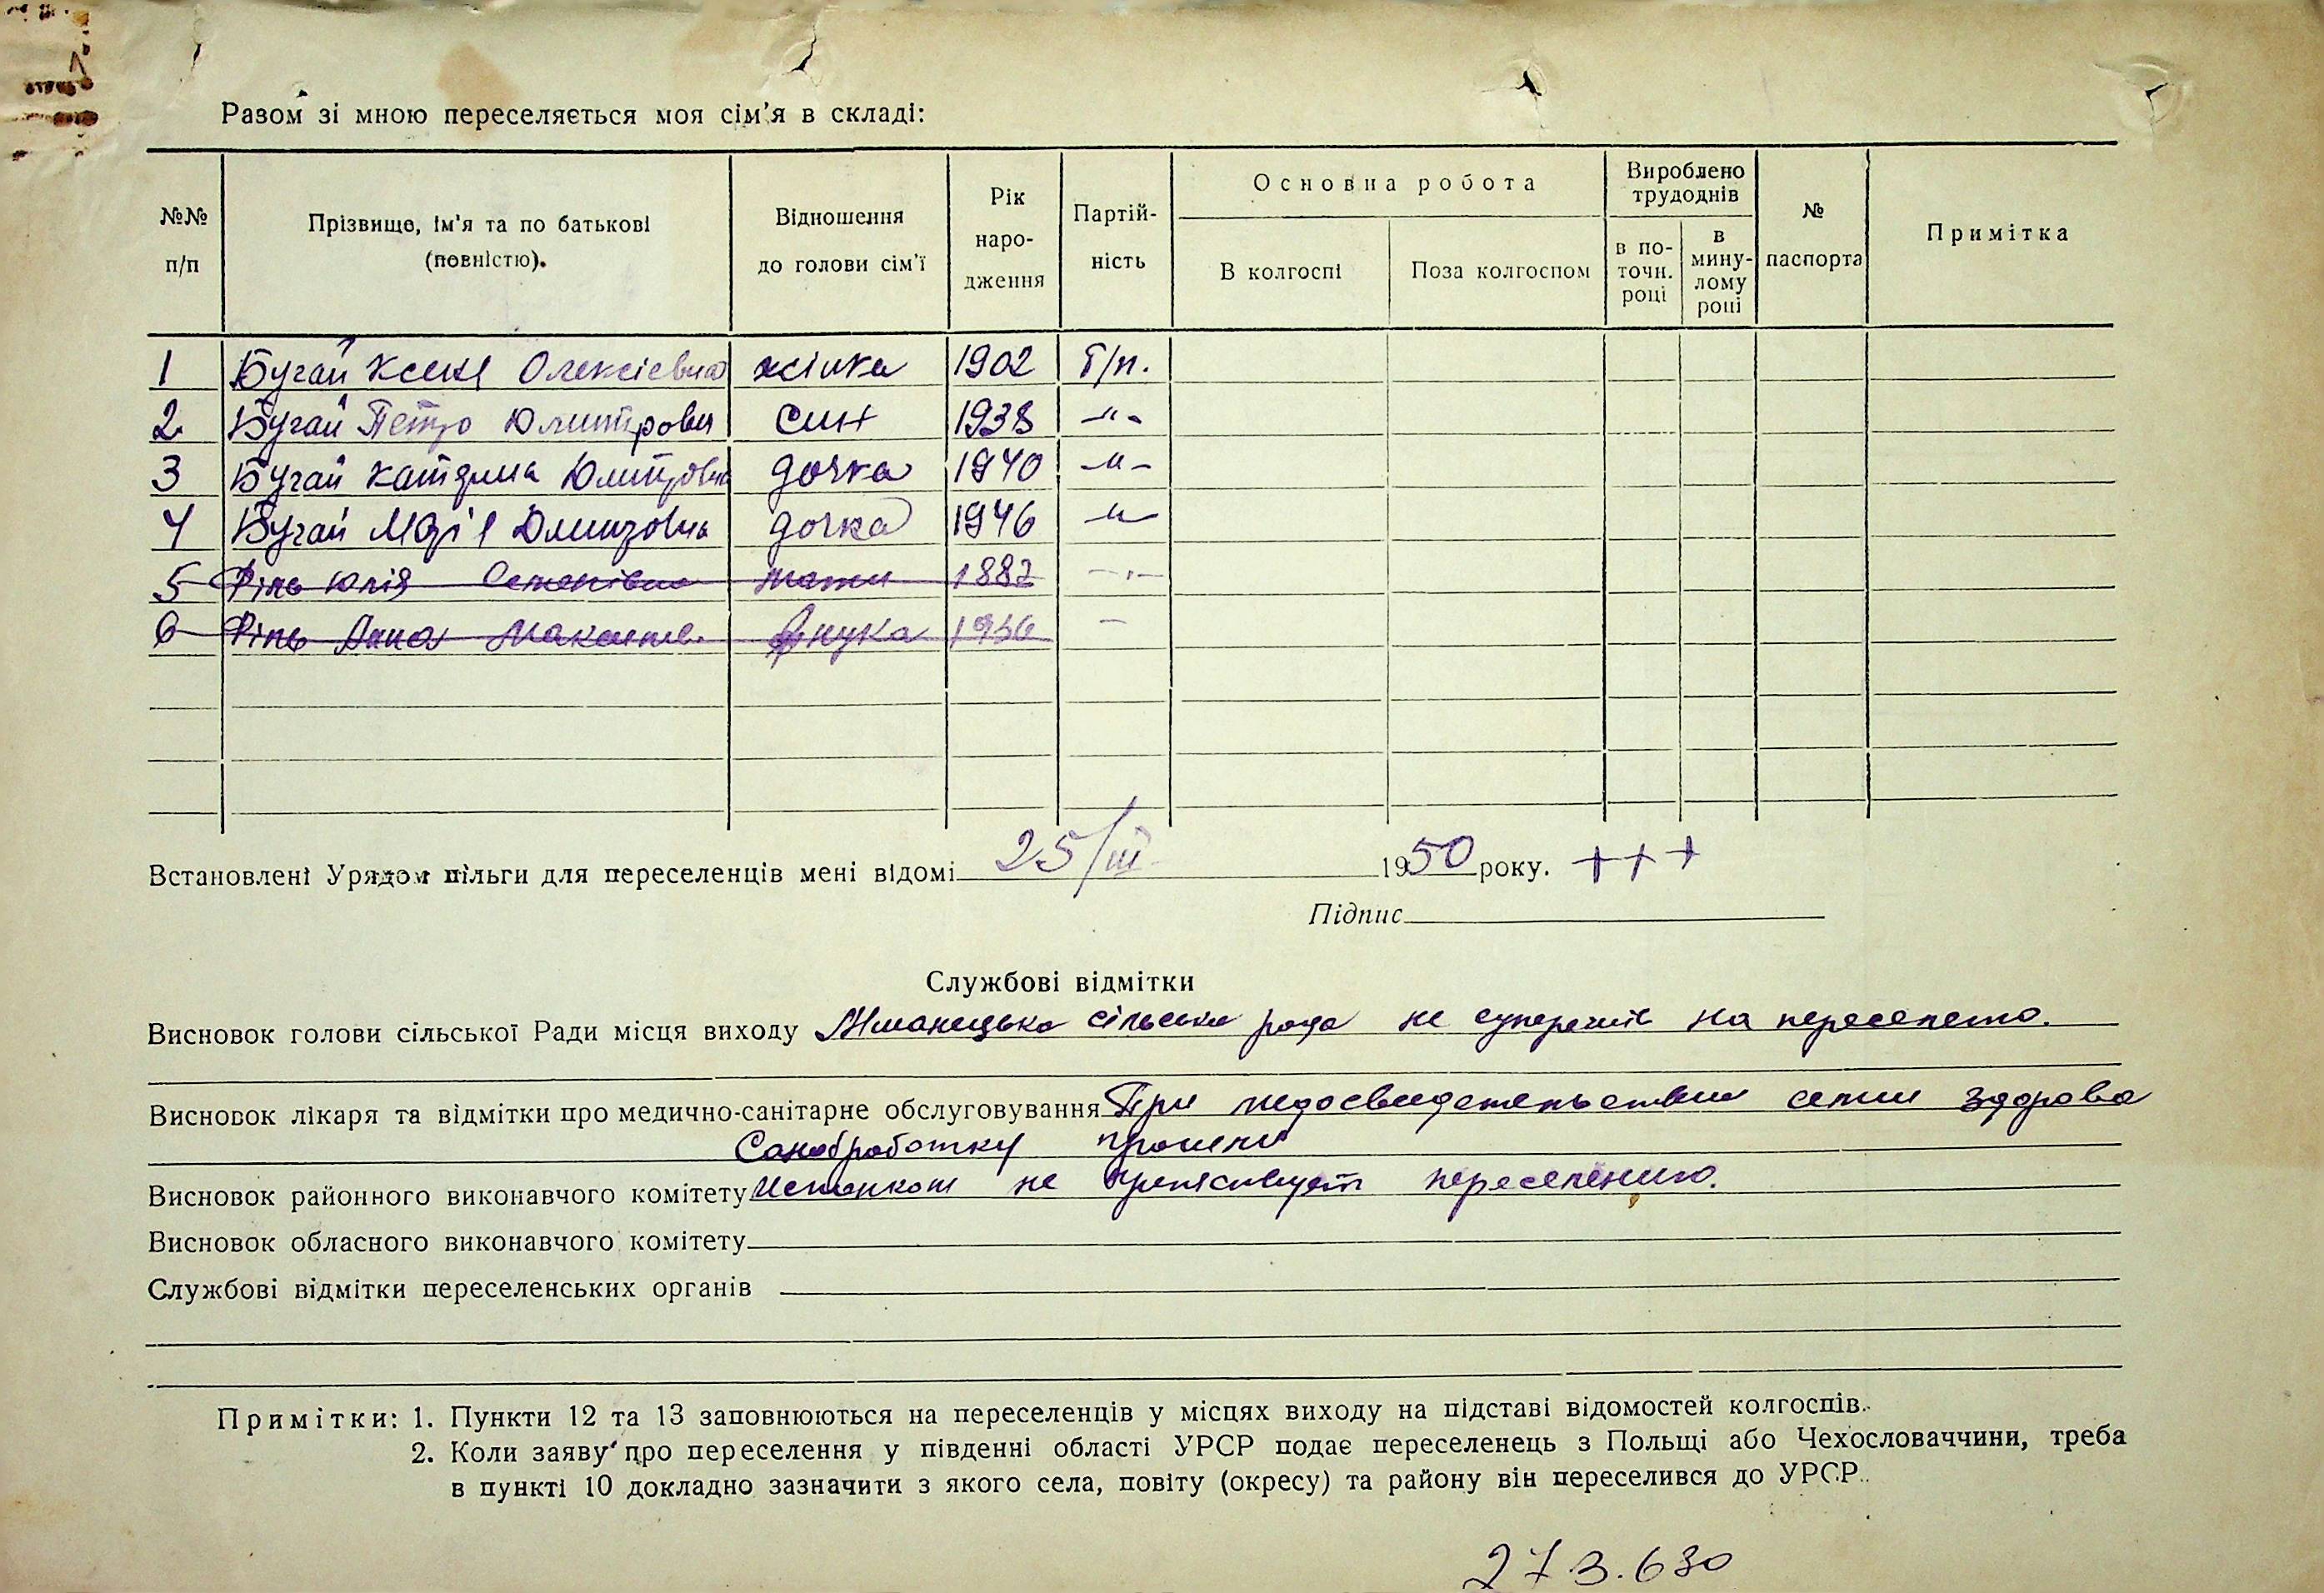 Разом зі мною переселяється моя сім'я в складі:
№№ п/п
Прізвище, ім'я та по батькові (повністю).
Відношення до голови сім'ї
Рік народження
Партійність
Основна робота
В колгоспі
Поза колгоспом
Вироблено трудоднів
в поточн. році
в минулому році
№ паспорта
Примітка
1 Бугай Ксеня Олексіевна жінка 1902 б/п.
2. Бугай Петро Дмитрович син 1938 -"-
3 Бугай Катерина Дмитровна дочка 1940 -"-
4 Бугай Марія Дмитровна дочка 1946 -"-
5 Ріпь Юлія Семенівна мати 1882 -"-
6 Ріпь Анна внука 1936 -
Встановлені Урядом пільги для переселенців мені відомі 25/III 1950 року. +++
Підпис
Службові відмітки
Висновок голови сільської Ради місця виходу сільська рада не суперечить на переселення.
Висновок лікаря та відмітки про медично-санітарне обслуговування При медосвидетельствии семья здорова
Санобработку прошли
Висновок районного виконавчого комітету Исполком не препятствует переселению.
Висновок обласного виконавчого комітету
Службові відмітки переселенських органів
Примітки: 1. Пункти 12 та 13 заповнюються на переселенців у місцях виходу на підставі відомостей колгоспів.
2. Коли заяву про переселення у південні області УРСР подає переселенець з Польщі або Чехословаччини, треба
в пункті 10 докладно зазначити з якого села, повіту (окресу) та району він переселився до УРСР.
273.630